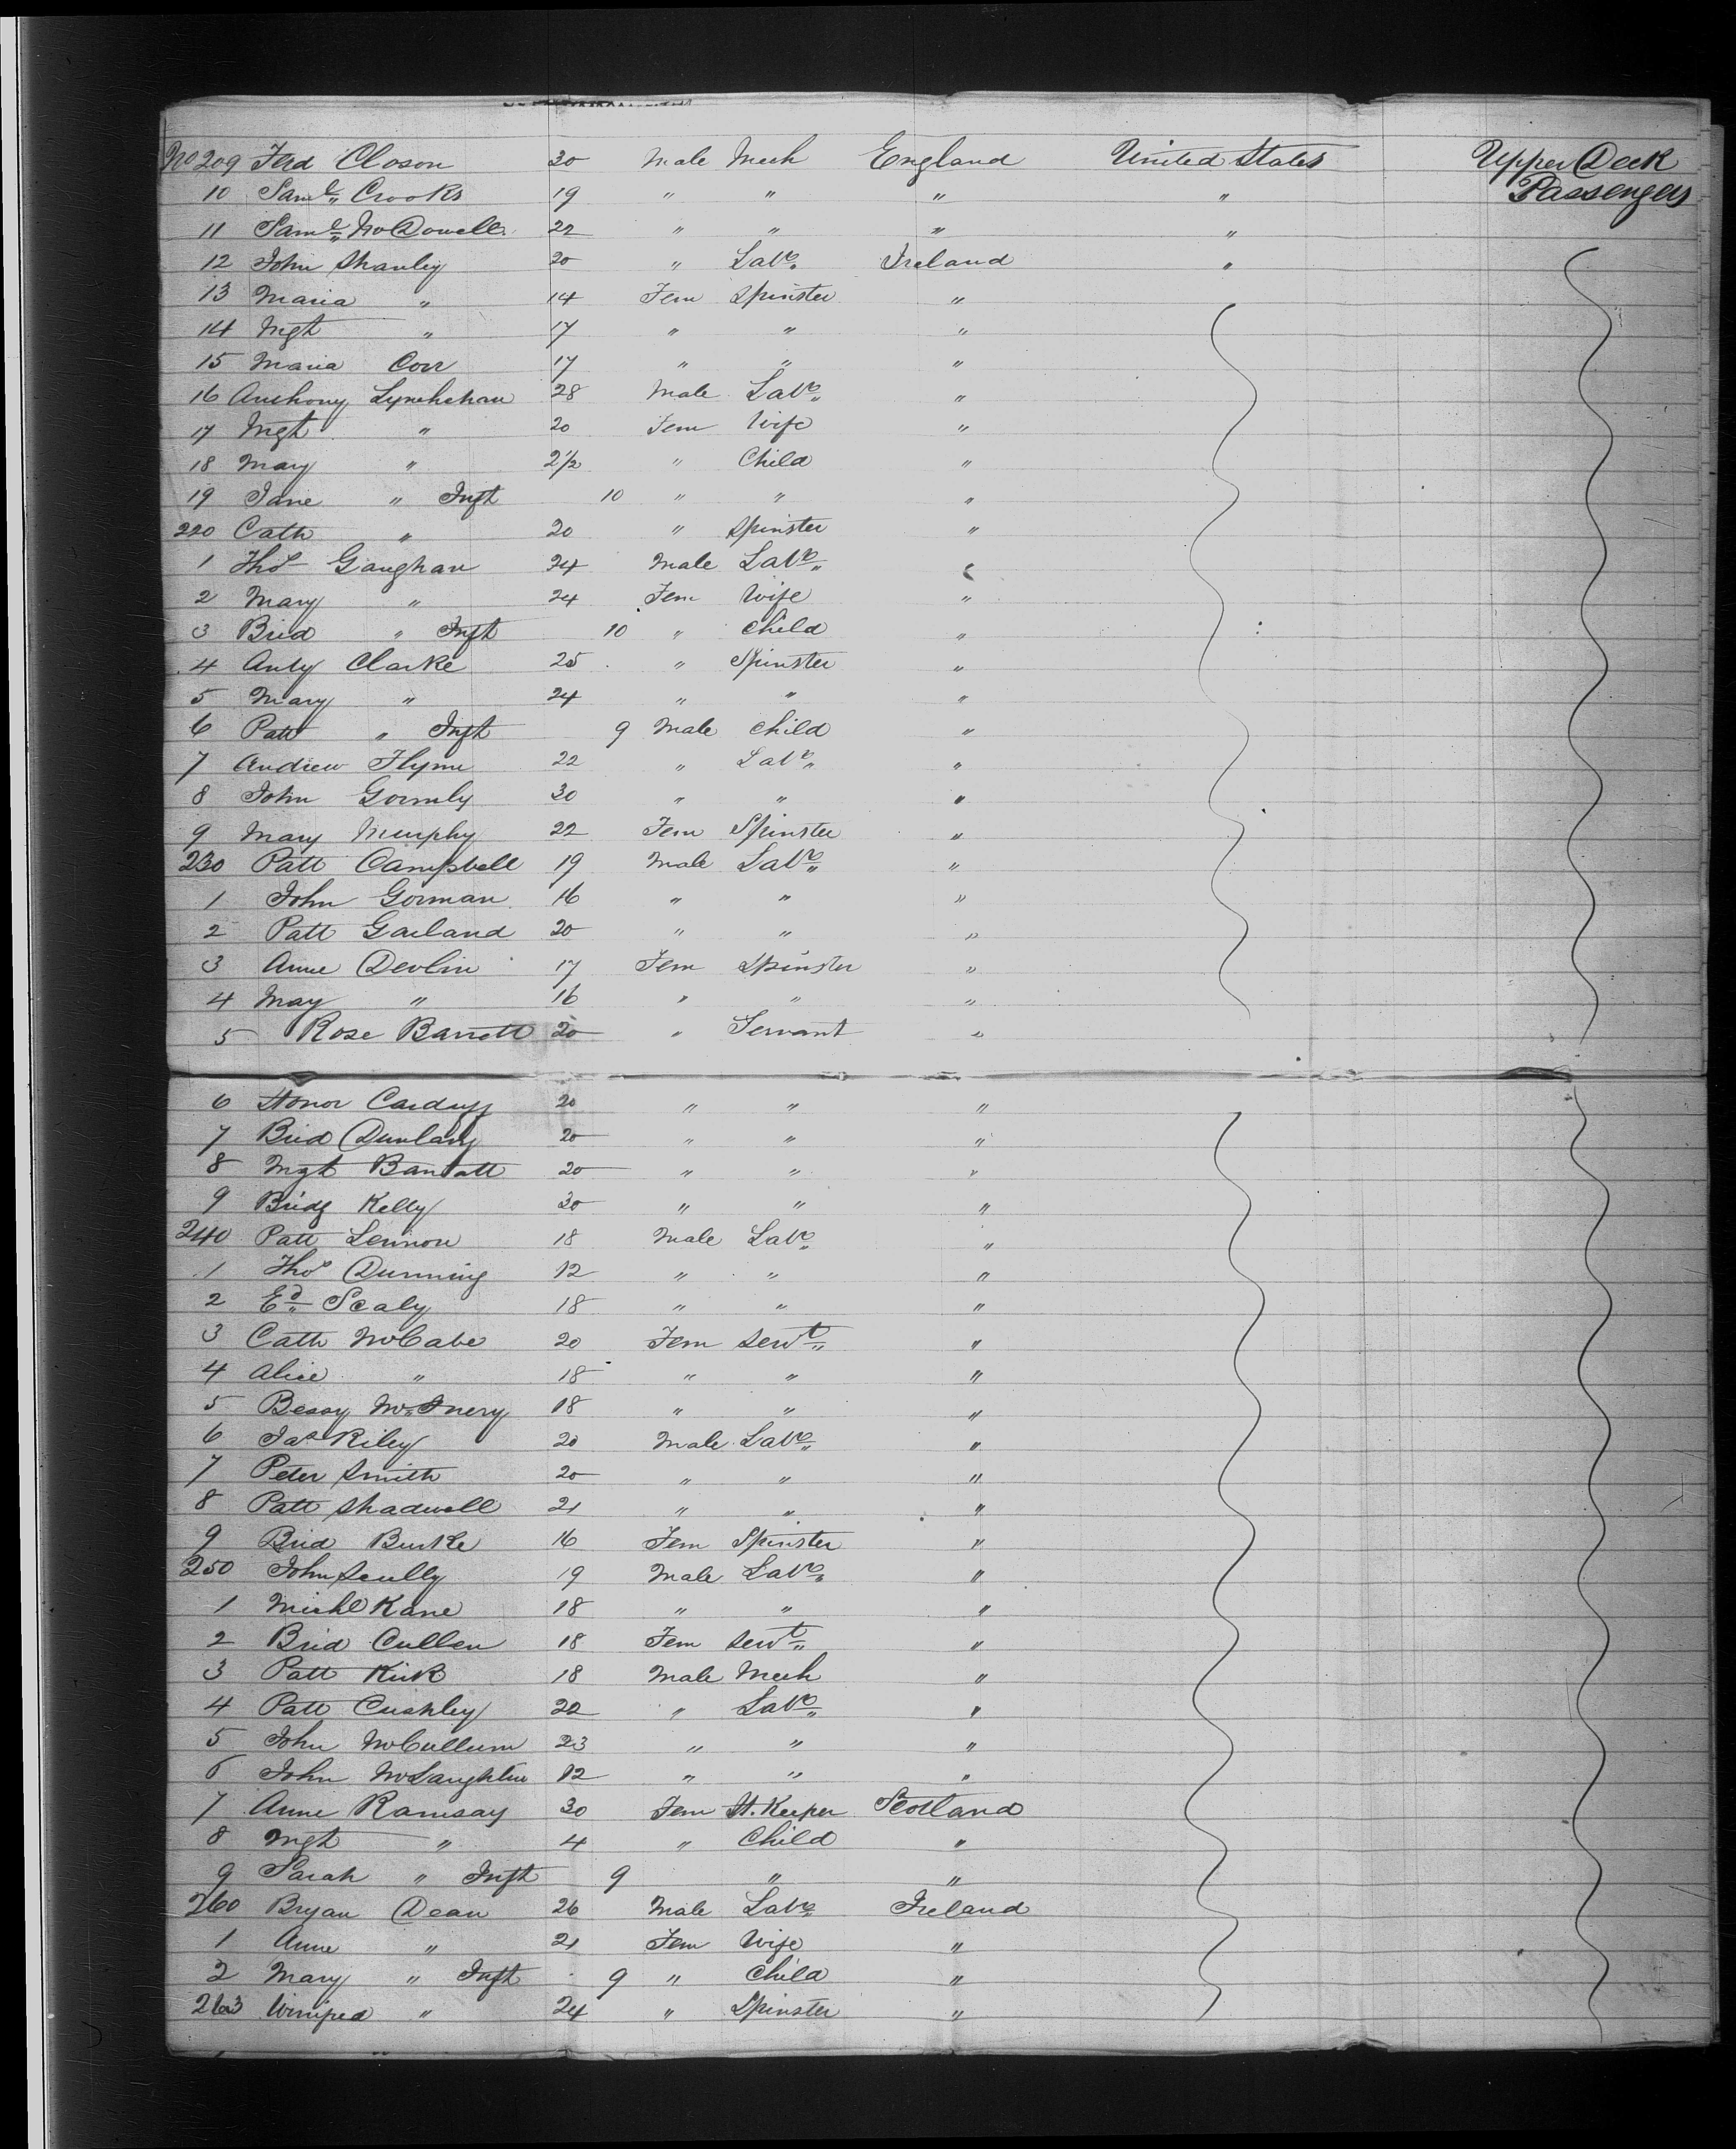 No 209 Ferd Closon 30 Male Mech England United States Upper Deck
10 Saml Crooks 19 " " " " Passengers
11 Saml McDowell 22 " " " "
12 John Shanley 20 " Labr Ireland "
13 Maria " 14 Fem Spinster "
14 Mgt " 17 " " "
15 Maria Corr 17 " " "
16 Anthony Lynehehan 28 Male Labr "
17 Mgt " 20 Fem Wife "
18 Mary " 2½ " Child "
19 Jane " Inft 10 " " "
220 Cath " 20 " Spinster "
1 Thos Gaughan 24 Male Labr "
2 Mary " 24 Fem Wife "
3 Brid " Inft 10 " Child "
4 Anty Clarke 25 " Spinster "
5 Mary " 24 " " "
6 Patt " Inft 9 Male Child "
7 Andrew Flynn 22 " Labr "
8 John Gormly 30 " " "
9 Mary Murphy 22 Fem Spinster "
230 Patt Campbell 19 Male Labr "
1 John Gorman 16 " " "
2 Patt Garland 20 " " "
3 Anne Devlin 17 Fem Spinster "
4 May " 16 " " "
5 Rose Barrett 20 " Servant "
6 Honor Carduff 20 " " "
7 Brid Dunlavy 20 " " "
8 Mgt 20 " " "
9 Bridg Kelly 30 " " "
240 Patt Lennon 18 Male Labr "
1 Thos Dunning 12 " " "
2 Ed Scaly 18 " " "
3 Cath McCabe 20 Fem Servt "
4 Alice " 18 " " "
5 Bessy McInery 18 " " "
6 Jas Riley 20 Male Labr "
7 Peter Smith 20 " " "
8 Patt Shadwell 21 " " "
9 Brid Burke 16 Fem Spinster "
250 John Scully 19 Male Labr "
1 Michl Kane 18 " " "
2 Brid Cullen 18 Fem Servt "
3 Patt Kirk 18 Male Mech "
4 Patt Cushley 22 " Labr "
5 John McCullum 23 " " "
6 John McLaughlin 12 " " "
7 Anne Ramsay 30 Fem H. Keeper Scotland
8 Mgt " 4 " Child "
9 Sarah " Inft 9 " "
260 Bryan Dean 26 Male Labr Ireland
1 Anne " 21 Fem Wife "
2 Mary " Inft 9 " Child "
263 Winifred " 24 " Spinster "